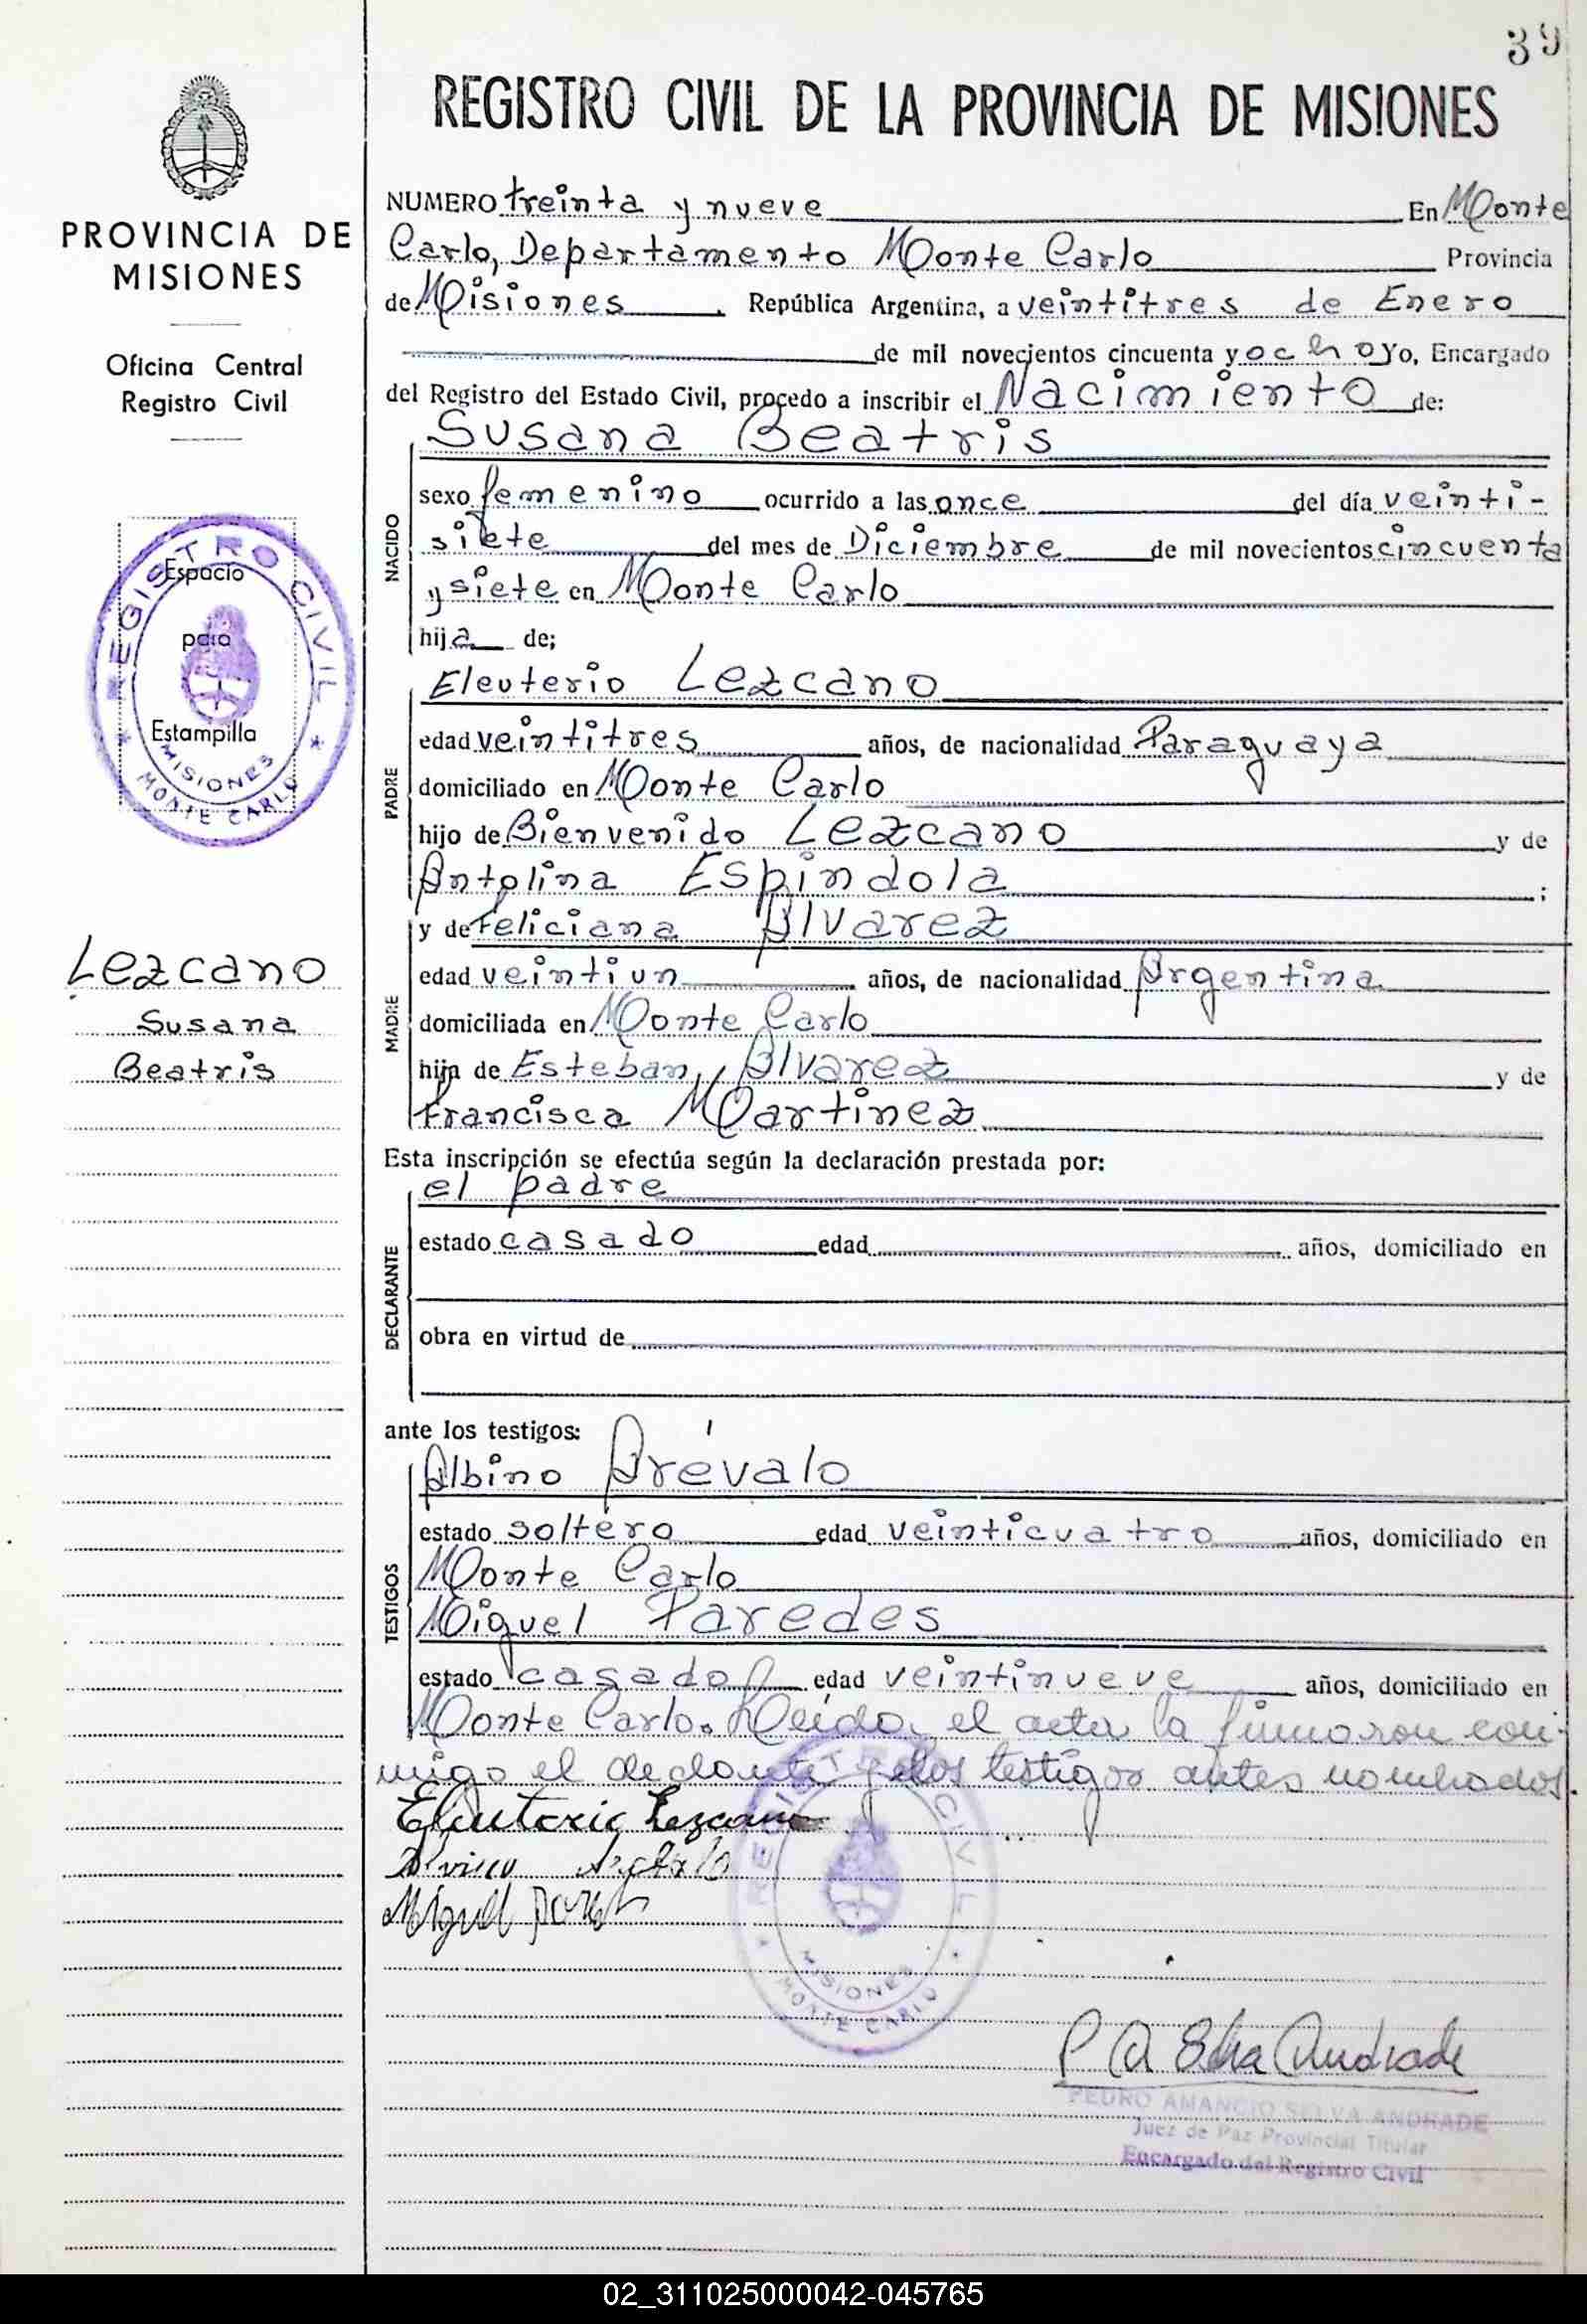 39
REGISTRO CIVIL DE LA PROVINCIA DE MISIONES
PROVINCIA DE
MISIONES
Oficina Central
Registro Civil
REGISTRO CIVIL
Espacio
para
Estampilla
MISIONES
MONTE CARLO
Lezcano
Susana
Beatris
NUMERO treinta y nueve En Monte
Carlo, Departamento Monte Carlo Provincia
de Misiones, República Argentina, a veintitres de Enero
de mil novecientos cincuenta y ocho yo, Encargado
del Registro del Estado Civil, procedo a inscribir el Nacimiento de:
NACIDO
Susana Beatris
sexo femenino ocurrido a las once del día veinti-
siete del mes de Diciembre de mil novecientos cincuenta
y siete en Monte Carlo
hija de;
PADRE
Eleuterio Lezcano
edad veintitres años, de nacionalidad Paraguaya
domiciliado en Monte Carlo
hijo de Bienvenido Lezcano y de
Antolina Espindola ;
MADRE
y de Feliciana Alvarez
edad veintiun años, de nacionalidad Argentina
domiciliada en Monte Carlo
hija de Esteban Alvarez y de
Francisca Martinez
Esta inscripción se efectúa según la declaración prestada por:
DECLARANTE
el padre
estado casado edad años, domiciliado en
obra en virtud de
ante los testigos:
TESTIGOS
Albino Arévalo
estado soltero edad veinticuatro años, domiciliado en
Monte Carlo
Miguel Paredes
estado casado edad veintinueve años, domiciliado en
Monte Carlo. Leído, el acta la firmaron con-
migo el declante y los testigos antes nombrados.
Eleuterio Lezcano
Miguel
REGISTRO CIVIL
MISIONES
MONTE CARLO
P A Selva Andrade
PEDRO AMANCIO SELVA ANDRADE
Juez de Paz Provincial Titular
Encargado del Registro Civil
02_311025000042-045765